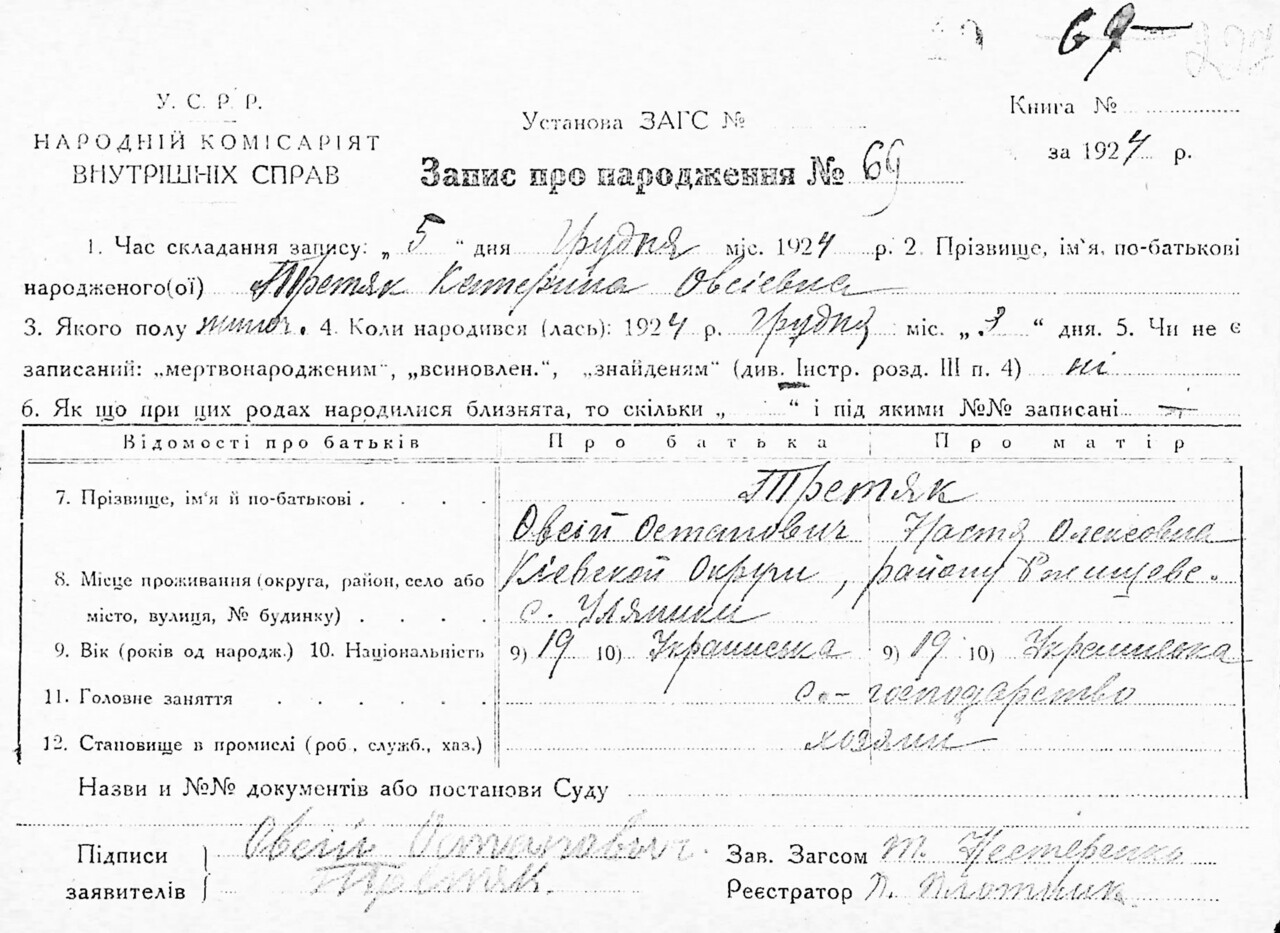 69
У. С. Р. Р.
НАРОДНІЙ КОМІСАРІЯТ
ВНУТРІШНІХ СПРАВ
Установа ЗАГС №
Книга №
за 1924 р.
Запис про народження № 69
1. Час складання запису: „ 5 “ дня Грудня міс. 1924 р. 2. Прізвище, ім'я, по-батькові
народженого(ої) Третяк Катерина Овсієвна
3. Якого полу 4. Коли народився (лась): 1924 р. Грудня міс. „ 3 “ дня. 5. Чи не є
записаний: „мертвонародженим“, „всиновлен.“, „знайденям“ (див. Інстр. розд. III п. 4) ні
6. Як що при цих родах народилися близнята, то скільки „ “ і під якими №№ записані —
Відомості про батьків Про батька Про матір
7. Прізвище, ім'я й по-батькові . . . . Третяк
Овсій Остапович Настя Олексовна
8. Місце проживання (округа, район, село або Кіевской Округи, району
місто, вулиця, № будинку) . . . . с. Уляники
9. Вік (років од народж.) 10. Національність 9) 19 10) Украинська 9) 19 10) Украинська
11. Головне заняття . . . . . . с.-господарство
12. Становище в промислі (роб., служб., хаз.) хозяин
Назви и №№ документів або постанови Суду
Підписи Овсій Остапович
заявителів Третяк.
Зав. Загсом Т. Нестеренко
Реєстратор П. Плотник